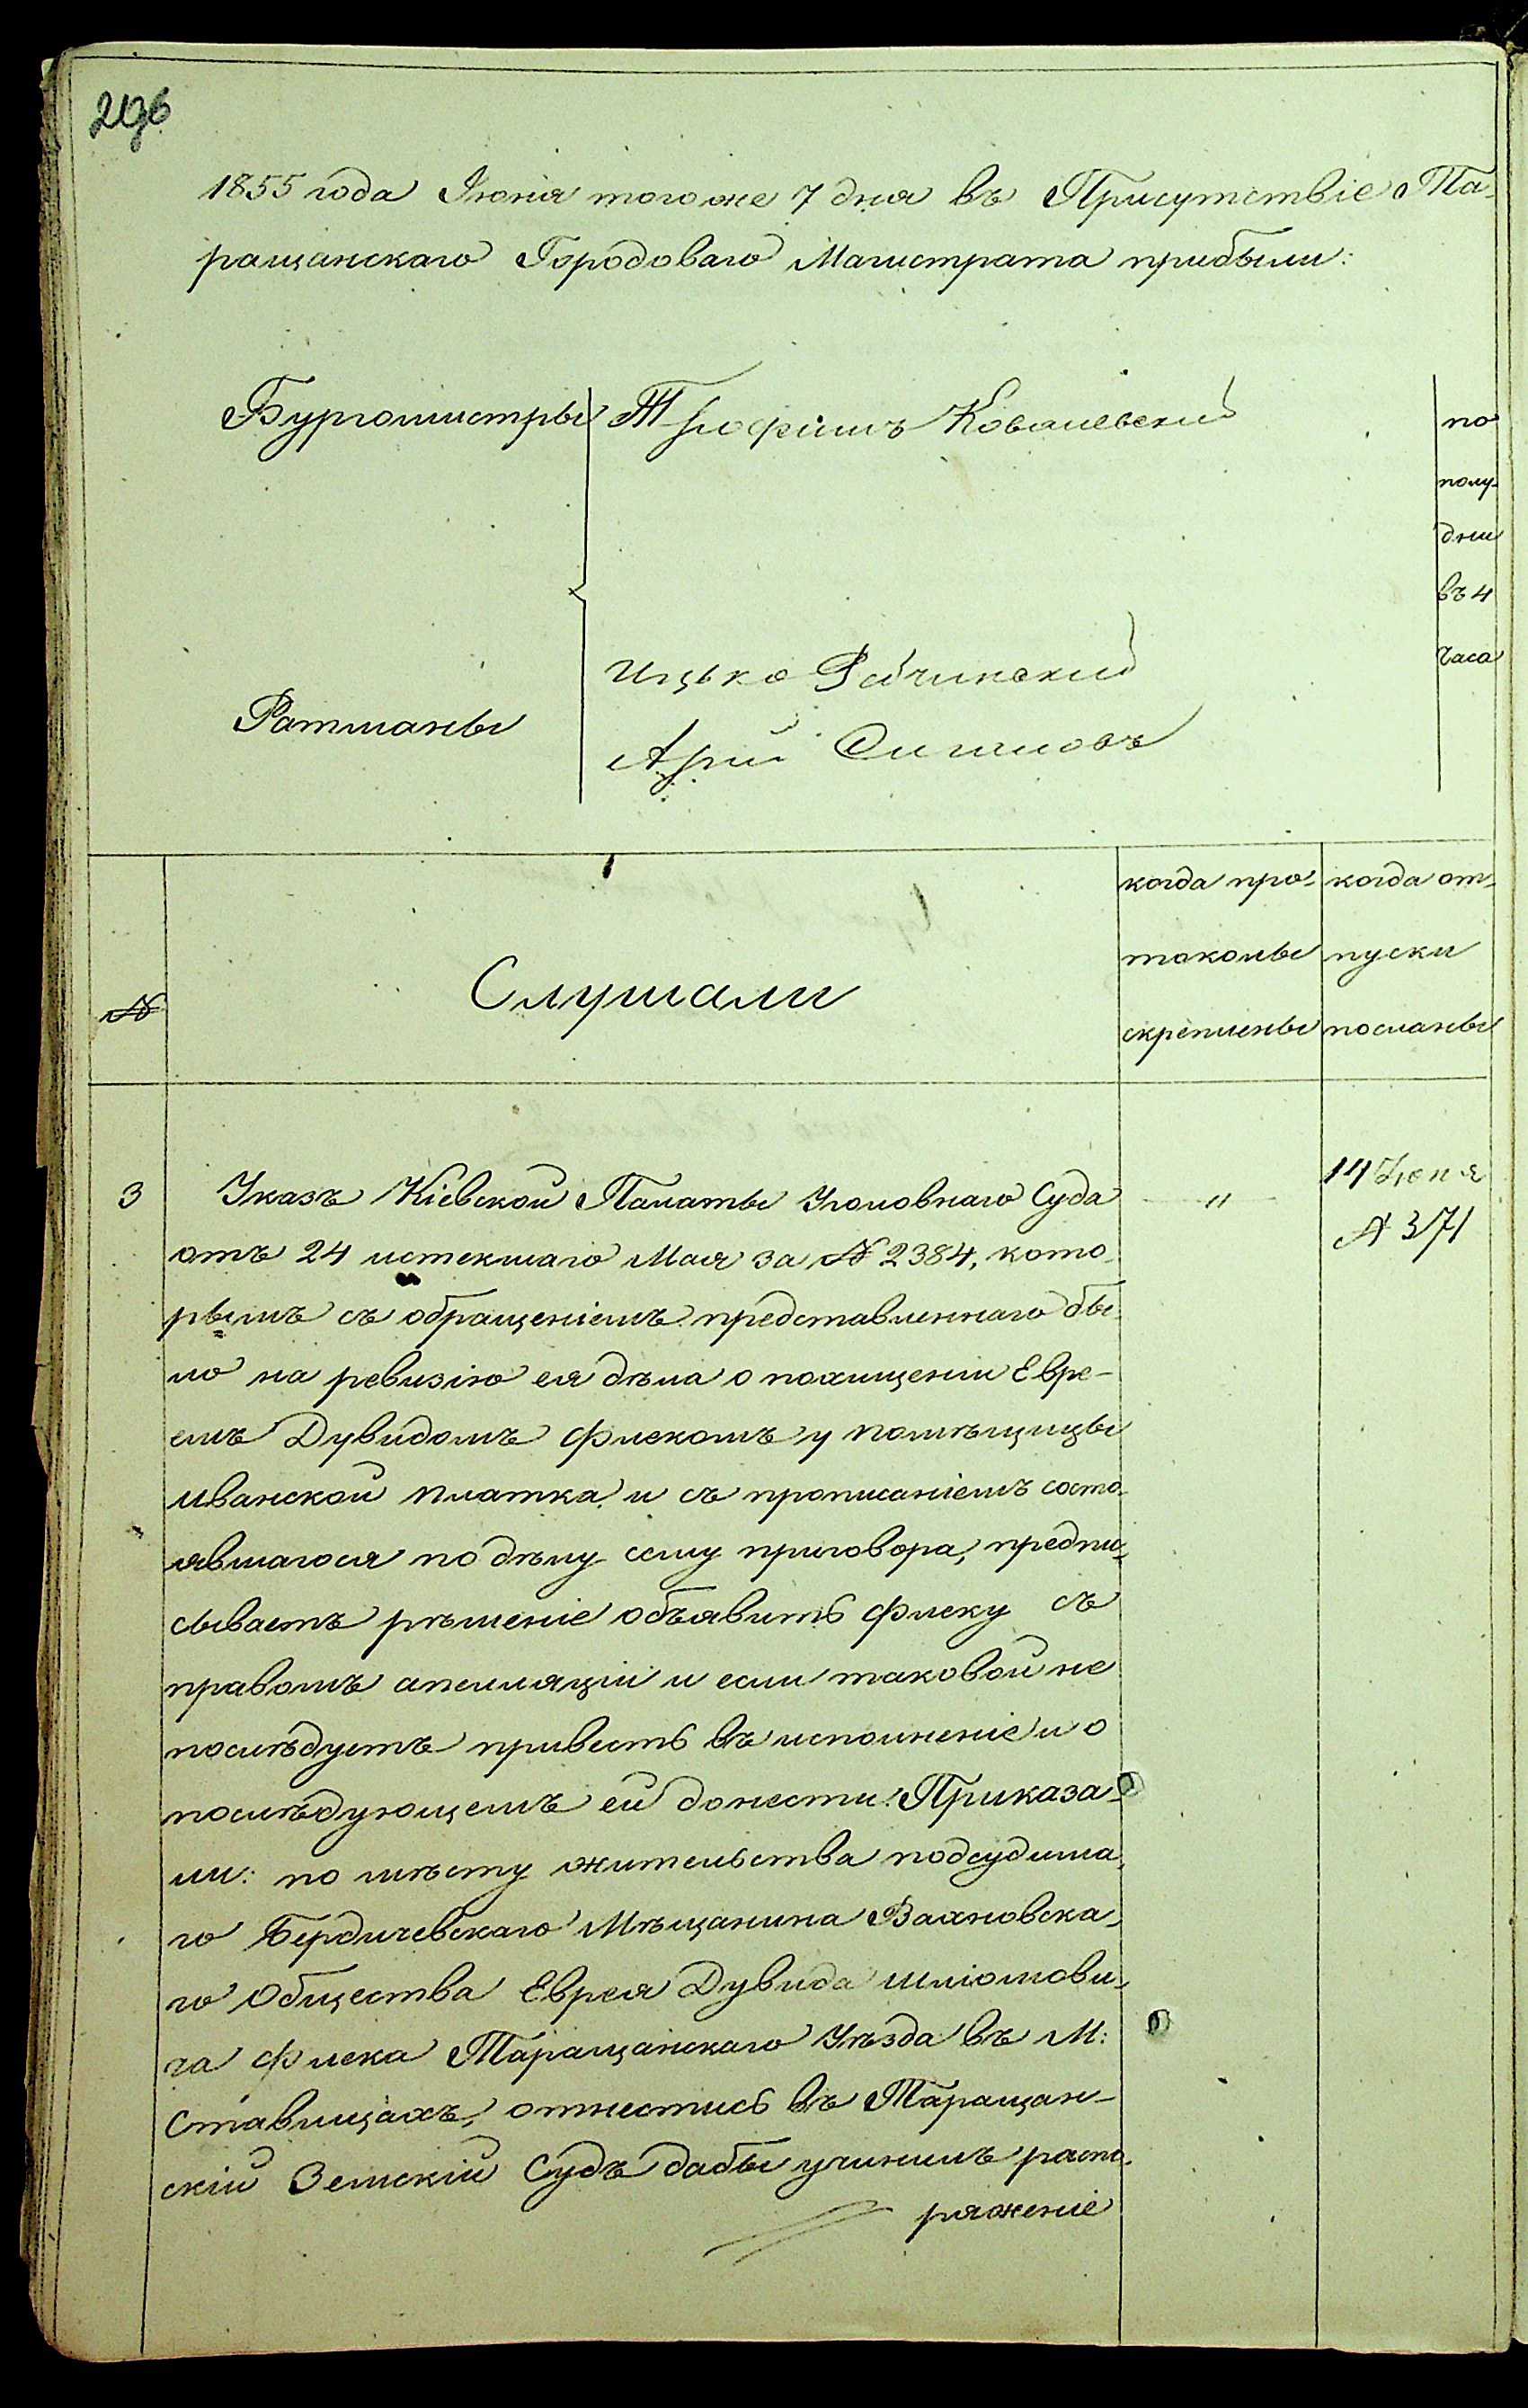 296
1855 года Іюня того же 7 дня въ Присутствіе Та-
ращанскаго Городоваго Магистрата прибыли:
Бургомистры
Трофимъ Ковалевский
по
полу-
дни
въ 4
часа
Ратманы
Ицько Рабчинский
Арий Симновъ
№
Слушали
когда про-
токолы
скреплены
когда от-
пуски
посланы
3
Указъ Кіевской Палаты Уголовнаго Суда
"
14 Іюня
№ 371
отъ 24 истекшаго Мая за № 2384, кото-
рымъ съ обращеніемъ представленнаго бы-
ло на ревизію ея дѣла о похищеніи Евре-
емъ Дувидомъ Флекомъ у помѣщицы
Иванской платка и съ прописаніемъ состо-
явшагося по дѣлу сему приговора, предпи-
сываетъ рѣшеніе объявить Флеку съ
правомъ апелляціи и если таковой не
послѣдуетъ привесть въ исполненіе и о
послѣдующемъ ей донести. Приказа-
ли: по мѣсту жительства подсудима-
го Бердичевскаго Мѣщанина Вахновска-
го Общества Еврея Дувида Шліомови-
ча Флека Таращанскаго Уѣзда въ М:
Ставищахъ, отнестись въ Таращан-
скій Земскій Судъ дабы учинилъ распо-
ряженіе